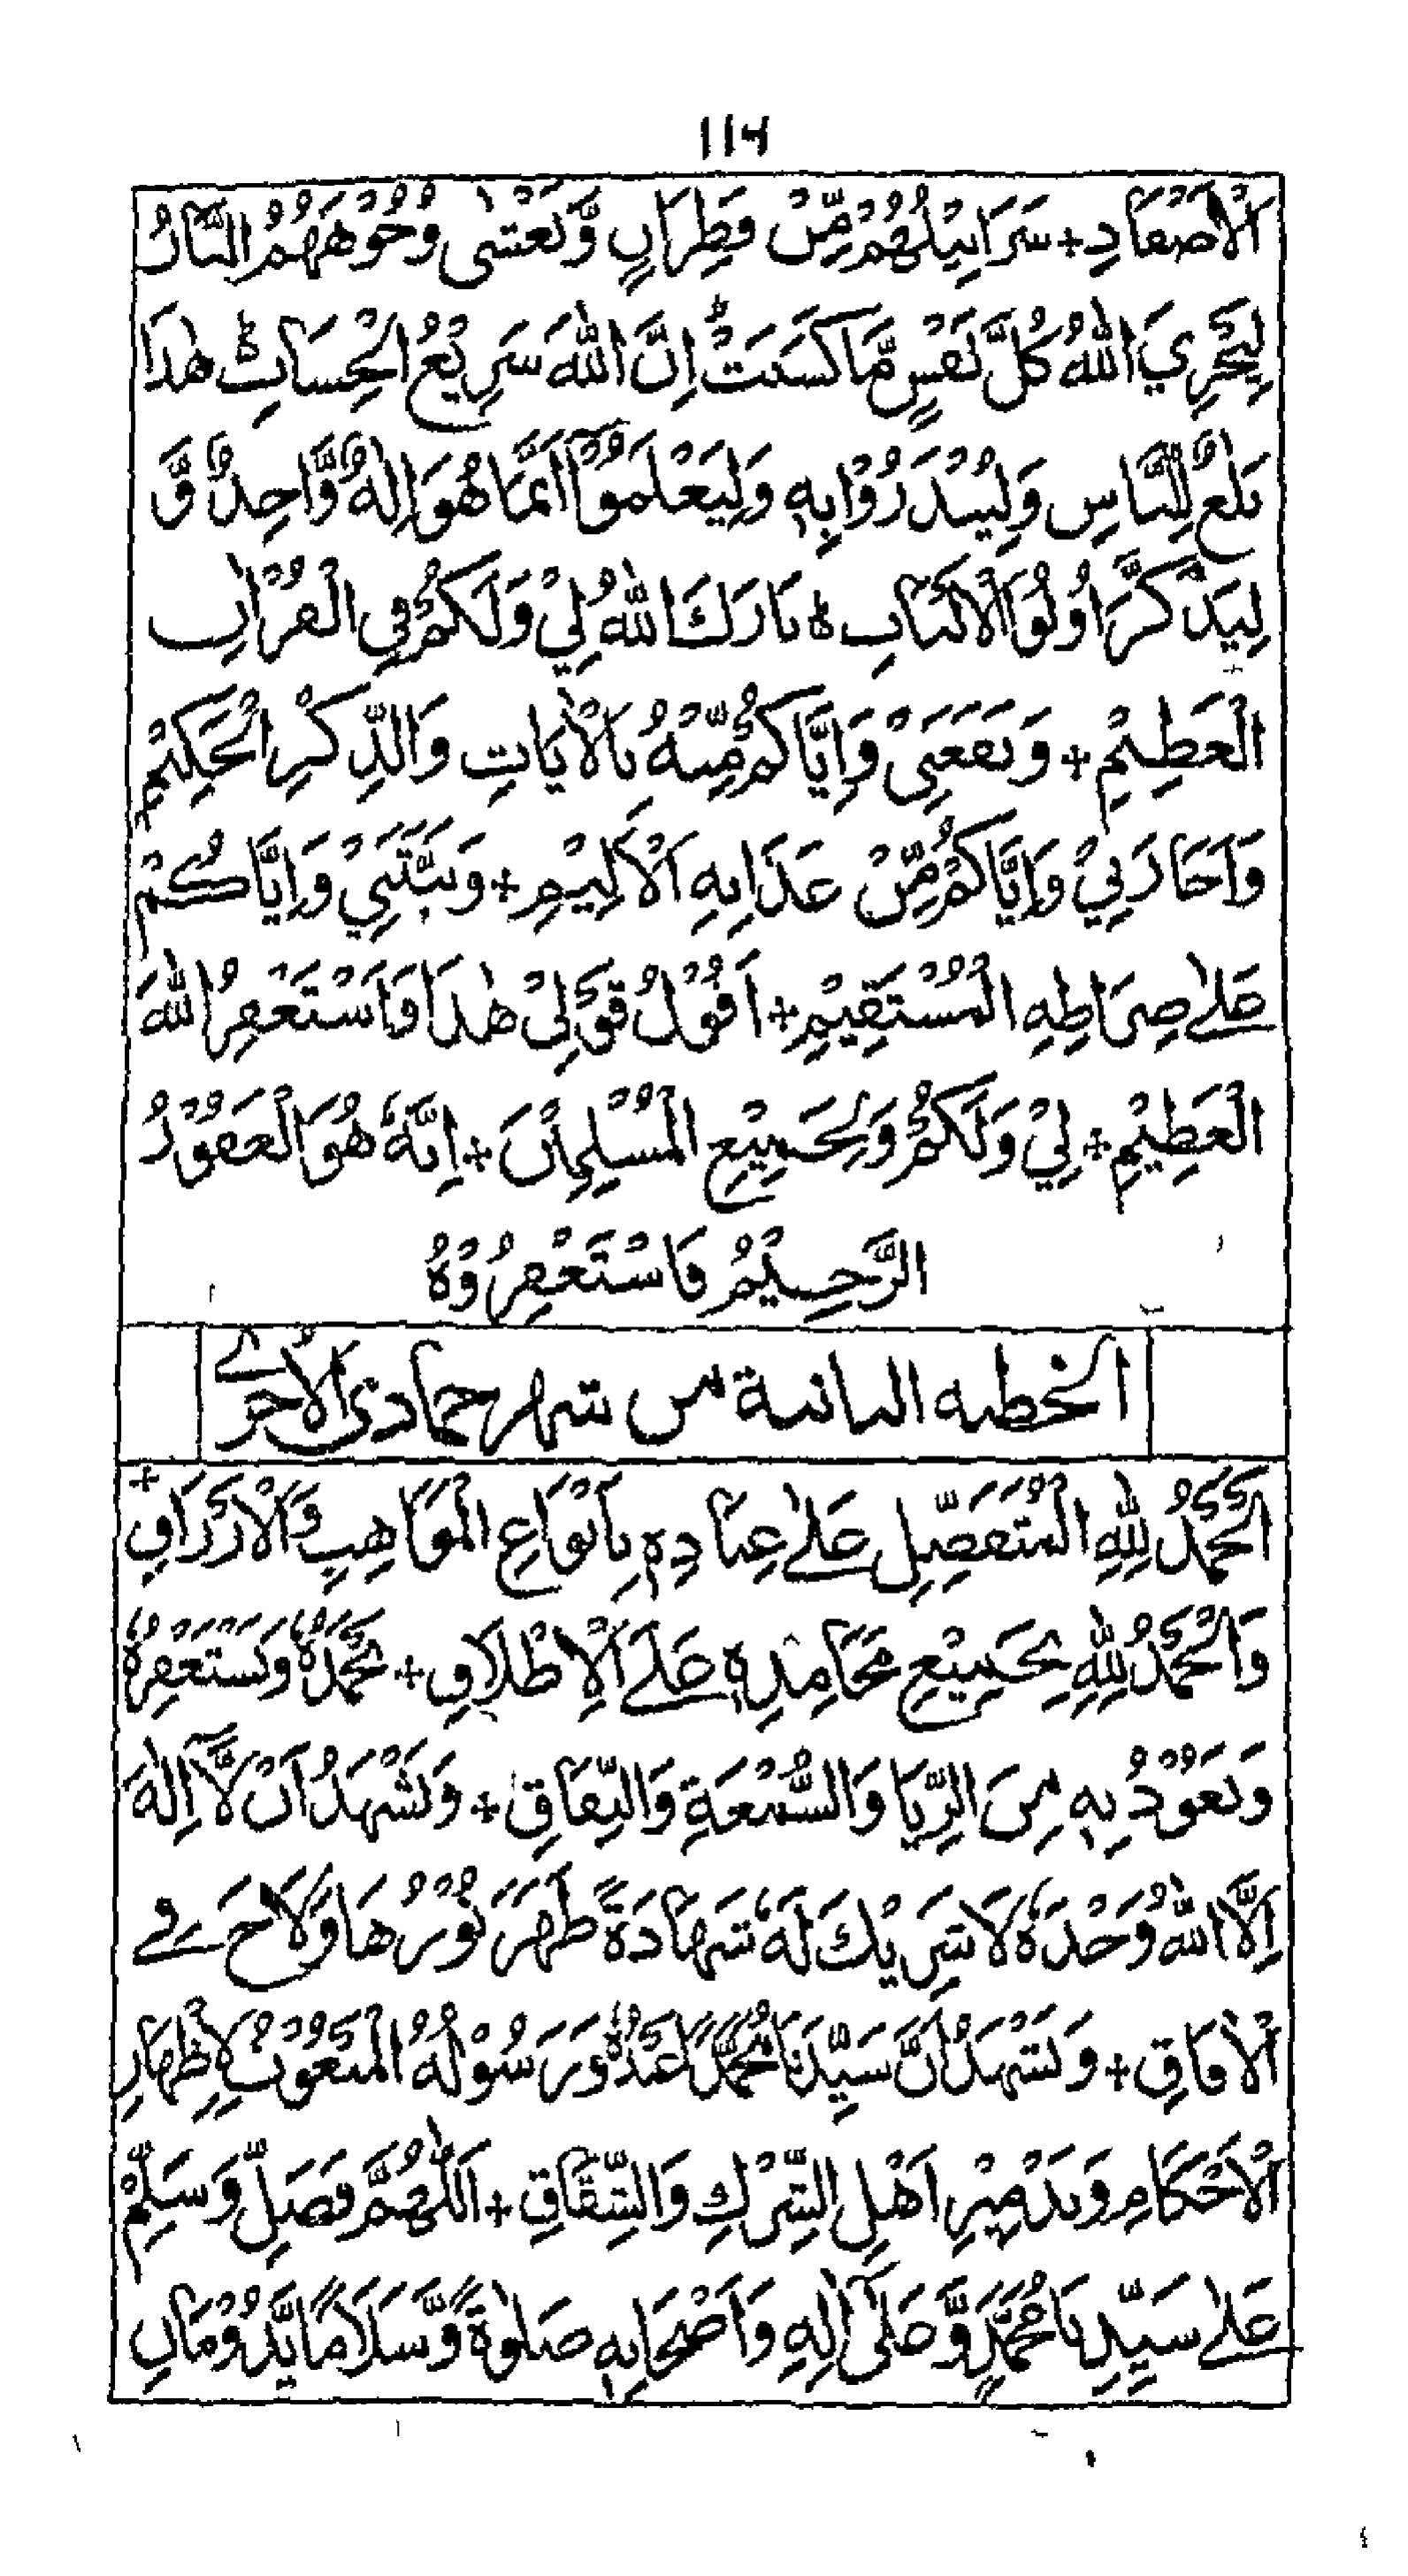 ۱۱۴
اَلْاَصْفَادِ + سَرَابِيْلُهُمْ مِّنْ قَطِرَانٍ وَّتَغْشٰى وُجُوْهَهُمُ النَّارُ
لِيَجْزِيَ اللهُ كُلَّ نَفْسٍ مَّا كَسَبَتْ ؕ اِنَّ اللهَ سَرِيْعُ الْحِسَابِ ؕ هٰذَا
بَلٰغٌ لِّلنَّاسِ وَلِيُنْذَرُوْا بِهٖ وَلِيَعْلَمُوْٓا اَنَّمَا هُوَ اِلٰهٌ وَّاحِدٌ وَّ
لِيَذَّكَّرَ اُولُوا الْاَلْبَابِ ۃ بَارَكَ اللهُ لِيْ وَلَكُمْ فِي الْقُرْاٰنِ
الْعَظِيْمِ + وَنَفَعَنِيْ وَاِيَّاكُمْ مِّنْهُ بِالْاٰيَاتِ وَالذِّكْرِ الْحَكِيْمِ +
وَاَجَارَنِيْ وَاِيَّاكُمْ مِّنْ عَذَابِهِ الْاَلِيْمِ + وَثَبَّتَنِيْ وَاِيَّاكُمْ
عَلٰى صِرَاطِهِ الْمُسْتَقِيْمِ + اَقُوْلُ قَوْلِيْ هٰذَا فَاَسْتَغْفِرُ اللهَ
الْعَظِيْمِ + لِيْ وَلَكُمْ وَلِجَمِيْعِ الْمُسْلِمِيْنَ + اِنَّهٗ هُوَ الْغَفُوْرُ
الرَّحِيْمُ فَاسْتَغْفِرُوْهُ
الخطبه الثانية من شهر جمادى الاخرے
اَلْحَمْدُ لِلّٰهِ الْمُتَفَضِّلِ عَلٰى عِبَادِهٖ بِاَنْوَاعِ الْمَوَاهِبِ وَالْاَرْزَاقِ +
وَالْحَمْدُ لِلّٰهِ بِجَمِيْعِ مَحَامِدِهٖ عَلَى الْاِطْلَاقِ + نَحْمَدُهٗ وَنَسْتَغْفِرُهٗ
وَنَعُوْذُ بِهٖ مِنَ الرِّيَا وَالسُّمْعَةِ وَالنِّفَاقِ + وَنَشْهَدُ اَنْ لَّآ اِلٰهَ
اِلَّا اللهُ وَحْدَهٗ لَا شَرِيْكَ لَهٗ شَهَادَةً ظَهَرَ نُوْرُهَا وَلَاحَ فِے
الْاٰفَاقِ + وَنَشْهَدُ اَنَّ سَيِّدَنَا مُحَمَّدًا عَبْدُهٗ وَرَسُوْلُهُ الْمَبْعُوْثُ لِاِظْهَارِ
الْاَحْكَامِ وَتَدْمِيْرِ اَهْلِ الشِّرْكِ وَالشِّقَاقِ + اَللّٰهُمَّ فَصَلِّ وَسَلِّمْ
عَلٰى سَيِّدِنَا مُحَمَّدٍ وَّعَلٰٓى اٰلِهٖ وَاَصْحَابِهٖ صَلٰوةً وَّسَلَامًا يَّدُوْمَانِ